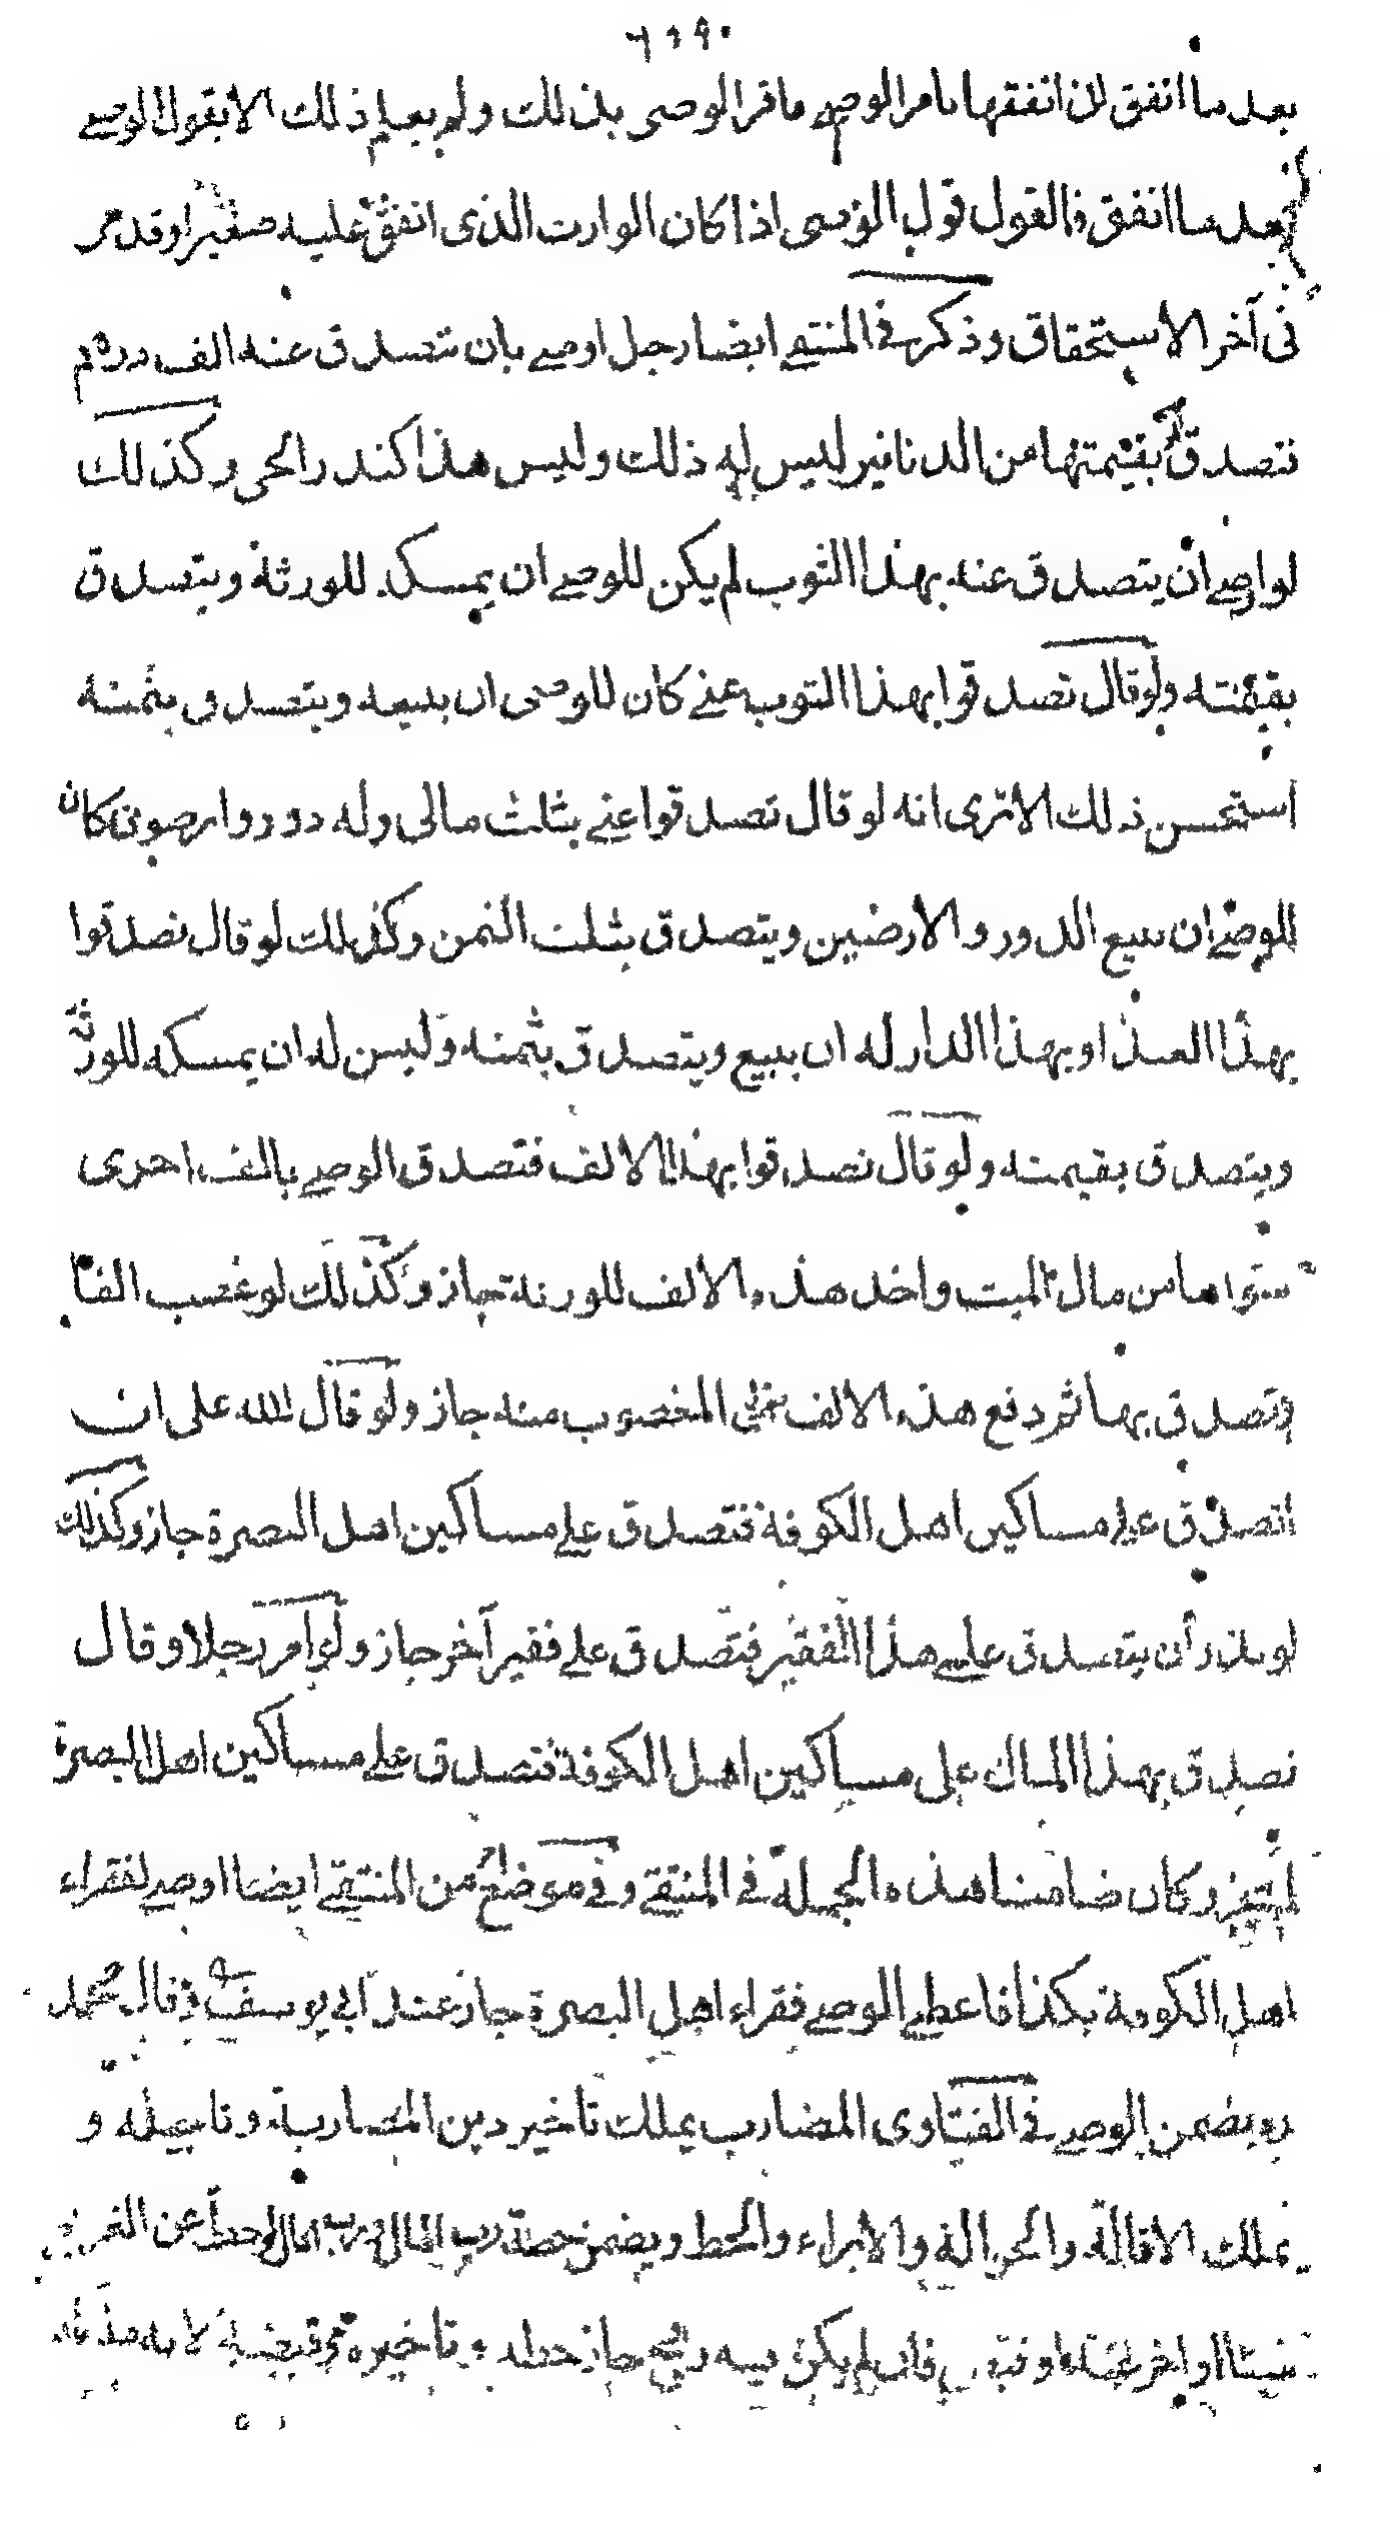 بعد ما انفق لان انفقها بامر الوصي فاقر الوصي بذلك ولم يعلم ذلك الا بقول الوصي
بعد ما انفق فالقول قول الوصي اذا كان الوارث الذي انفق عليه صغيرا وقد مر
في آخر الاستحقاق وذكر في المنتقى ايضا رجل اوصى بان تتصدق عنه الف درهم
تتصدق بقيمتها من الدنانير ليس له ذلك وليس هذا كنذر الحي وكذلك
لو اوصى ان يتصدق عنه بهذا الثوب لم يكن للوصي ان يمسك للورثة ويتصدق
بقيمته ولو قال تصدقوا بهذا الثوب عني كان للوصي ان يبيعه ويتصدق بثمنه
استحسن ذلك الا ترى انه لو قال تصدقوا عني بثلث مالي وله دور وارضون كان
للوصي ان يبيع الدور والارضين ويتصدق بثلث الثمن وكذلك لو قال تصدقوا
بهذا العبد او بهذا الدار له ان يبيع ويتصدق بثمنه وليس له ان يمسكه للورثة
ويتصدق بقيمته ولو قال تصدقوا بهذا الالف فتصدق الوصي بالف اخرى
سواها من مال الميت واخذ هذه الالف للورثة جاز وكذلك لو غصب الفا
وتصدق بها ثم دفع هذه الالف المغصوب منه جاز ولو قال لله على ان
اتصدق على مساكين اهل الكوفة فتصدق على مساكين اهل البصرة جاز وكذلك
لو نذر أن يتصدق على هذا الفقير فتصدق على فقير آخر جاز ولو امر رجلا وقال
تصدق بهذا المال على مساكين اهل الكوفة فتصدق على مساكين اهل البصرة
لم يجز وكان ضامنا هذه الجملة في المنتقى وفي موضع من المنتقى ايضا اوصى لفقراء
اهل الكوفة بكذا فاعطى الوصي فقراء اهل البصرة جاز عند ابي يوسف وقال محمد
يضمن الوصي في الفتاوى المضارب يملك تاخير دين المضاربة وتاجيله و
يملك الاقالة والحوالة والابراء والحط ويضمن حصة رب المال لو حط عن الغريم
شيئا او اخر فان لم يكن فيه ربح جاز حطه وتاخيره لانه